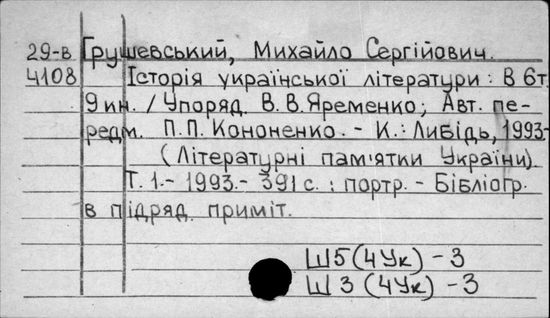 29-в Грушевський, Михайло Сергійович.
4108 Історія української літератури: В 6т
9 кн. / Упоряд. В.В.Яременко; Авт. пе-
редм. П.П. Кононенко. - К.: Либідь, 1993-
(Літературні пам'ятки України).
Т. 1. - 1993. - 391 с. : портр. - Бібліогр.
в підряд. приміт.
Ш5(4Ук) - 3
Ш3(4Ук) - 3